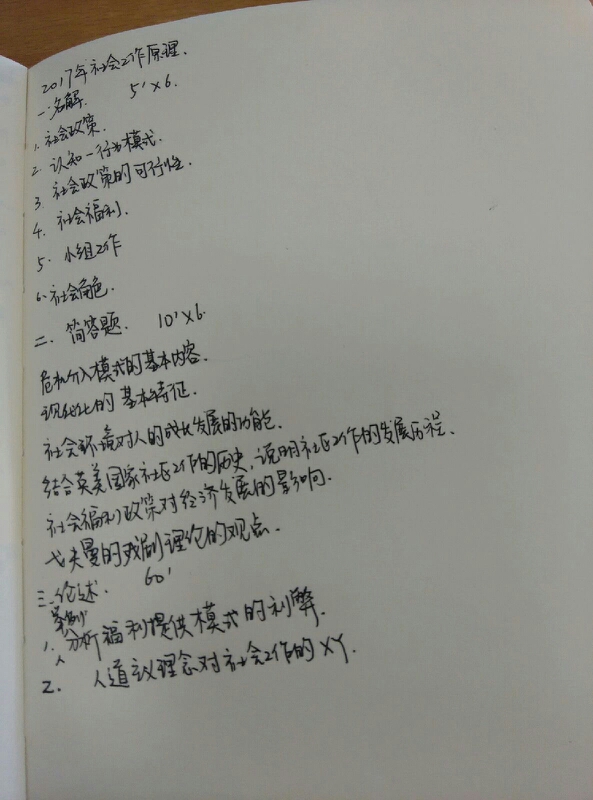 2017年社会工作原理.
一.名解. 5'×6.
1. 社会政策.
2. 认知—行为模式.
3. 社会政策的可行性.
4. 社会福利.
5. 小组工作
6. 社会角色.
二. 简答题. 10'×6.
危机介入模式的基本内容.
现代化的基本特征.
社会环境对人的成长发展的功能.
结合英美国家社区工作的历史,说明社区工作的发展历程.
社会福利政策对经济发展的影响.
戈夫曼的戏剧理论的观点.
三.论述. 60'
案例
1. 分析福利提供模式的利弊.
2. 人道主义理念对社会工作的XY.